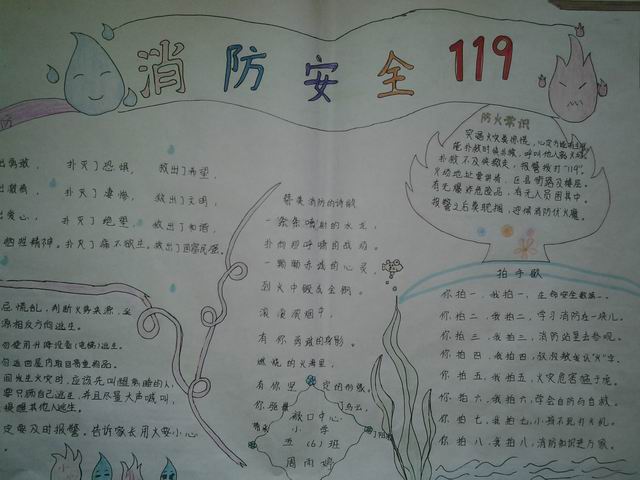 消防安全 119
扑灭了恐惧， 救出了希望，
扑灭了凄惨， 救出了文明，
扑灭了绝望， 救出了和谐，
牺牲精神。扑灭了痛不欲生，救出了国富民强。
慌乱，判断火势来源，
源相反方向逃生。
勿使用升降设备（电梯）逃生。
勿返回屋内取回贵重物品。
发生火灾时，应该先叫醒
要只顾自己逃生，并且尽量大声喊叫，
唤醒其他人逃生。
定要及时报警，告诉家长用火要小心
赞美消防的诗歌
一条条喷射的水龙，
扑向那呼啸的战场。
一颗颗赤诚的心灵，
烈火中锻炼金钢。
滚滚浓烟中，
有你勇敢的身影。
燃烧的火海里，
有你坚定的形象，
你
敖口中心
小学
五（6）班
周雨婷
防火常识
突遇火灾莫惊慌，
能扑救时快扑救，呼叫他人
扑救不及快撤去，报警拨打“119”。
火场地址要讲清，区县街路及楼层。
有无爆炸危险品，有无人员困其中。
报警之后莫耽搁，迎候消防伏火魔。
拍手歌
你拍一，我拍一，生命安全数第一。
你拍二，我拍二，学习消防在一块儿。
你拍三，我拍三，消防站里去参观。
你拍四，我拍四，叔叔教我认“火”字。
你拍五，我拍五，火灾危害猛于虎。
你拍六，我拍六，学会自防与自救。
你拍七，我拍七，小孩不玩打火机。
你拍八，我拍八，消防知识进万家。